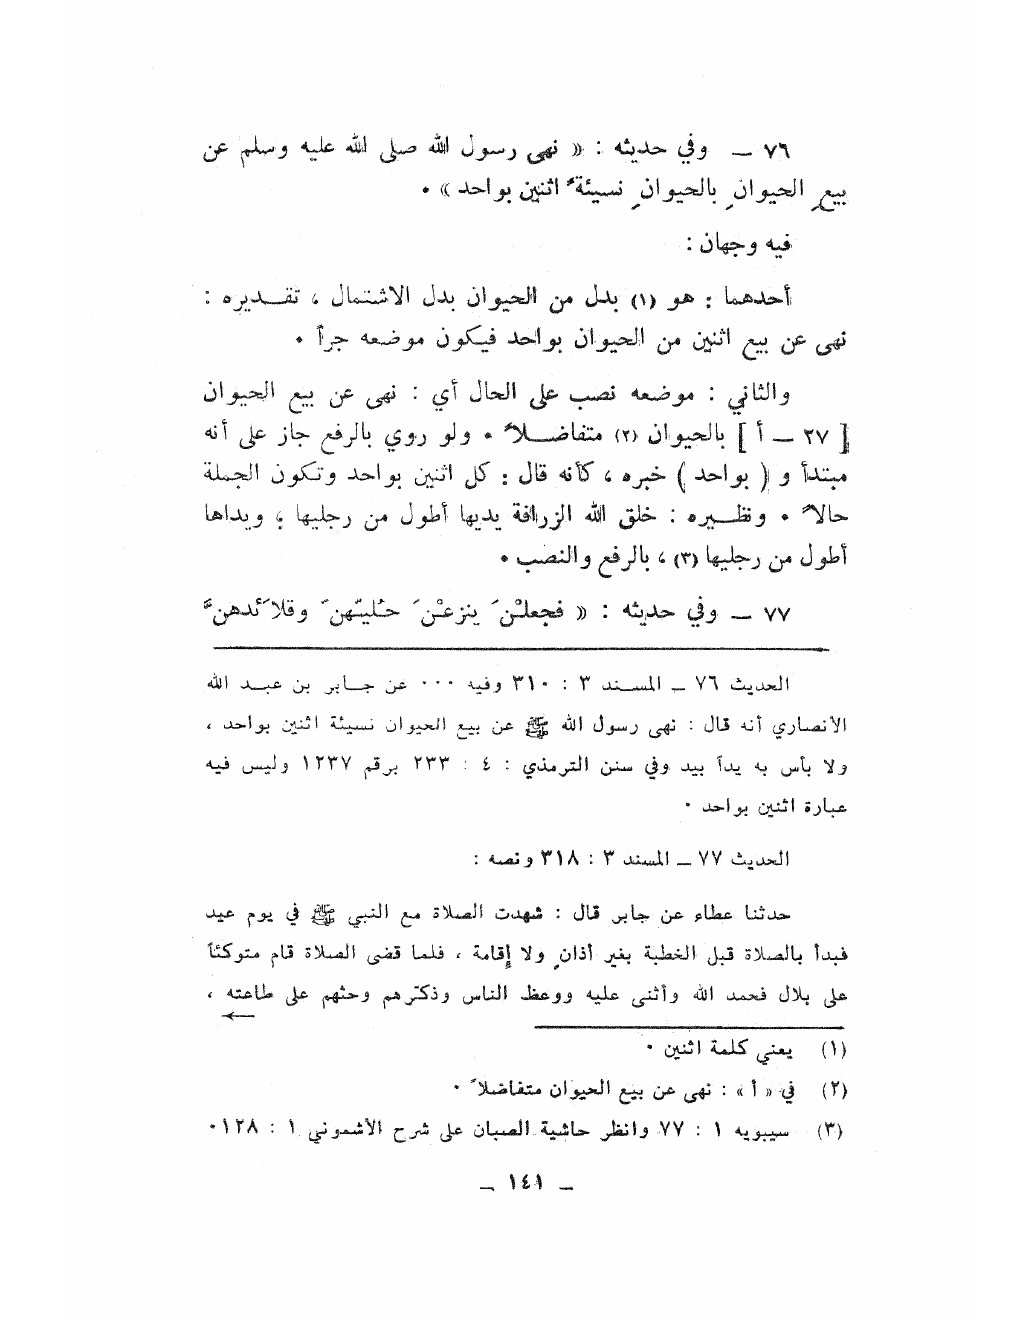 ٧٦ ــ وفي حديثه : « نهى رسول الله صلى الله عليه وسلم عن
بيعِ الحيوانِ بالحيوانِ نسيئةً اثنين بواحد » ٠
فيه وجهان :
أحدهما : هو (١) بدل من الحيوان بدل الاشتمال ، تقـــديره :
نهى عن بيع اثنين من الحيوان بواحد فيكون موضعه جراً ٠
والثاني : موضعه نصب على الحال أي : نهى عن بيع الحيوان
[ ٢٧ ــ أ ] بالحيوان (٢) متفاضــلاً ٠ ولو روي بالرفع جاز على أنه
مبتدأ و ( بواحد ) خبره ، كأنه قال : كل اثنين بواحد وتكون الجملة
حالاً ٠ ونظــيره : خلق الله الزرافة يديها أطول من رجليها ؛ ويداها
أطول من رجليها (٣) ، بالرفع والنصب ٠
٧٧ ــ وفي حديثه : « فجعلْنَ ينزعْنَ حُليّهنّ وقلائدهنَّ
الحديث ٧٦ ــ المســند ٣ : ٣١٠ وفيه ٠٠٠ عن جــابر بن عبــد الله
الأنصاري أنه قال : نهى رسول الله ﷺ عن بيع الحيوان نسيئة اثنين بواحد ،
ولا بأس به يداً بيد وفي سنن الترمذي : ٤ : ٢٣٣ برقم ١٢٣٧ وليس فيه
عبارة اثنين بواحد ٠
الحديث ٧٧ ــ المسند ٣ : ٣١٨ ونصه :
حدثنا عطاء عن جابر قال : شهدت الصلاة مع النبي ﷺ في يوم عيد
فبدأ بالصلاة قبل الخطبة بغير أذانٍ ولا إقامة ، فلما قضى الصلاة قام متوكئاً
على بلال فحمد الله وأثنى عليه ووعظ الناس وذكّرهم وحثهم على طاعته ،
←
(١) يعني كلمة اثنين ٠
(٢) في « أ » : نهى عن بيع الحيوان متفاضلاً ٠
(٣) سيبويه ١ : ٧٧ وانظر حاشية الصبان على شرح الأشموني ١ : ١٢٨٠
ــ ١٤١ ــ